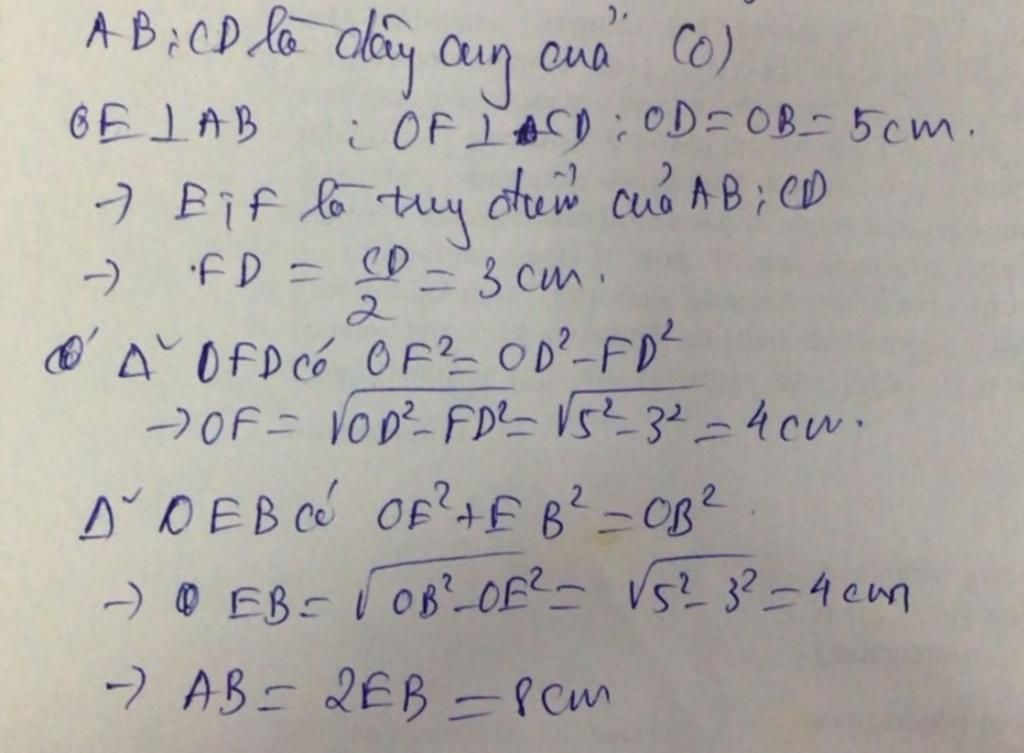 AB; CD là dây cung của (O)
OE ⊥ AB ; OF ⊥ CD ; OD = OB = 5 cm.
→ E; F là trung điểm của AB; CD
→ FD = CD/2 = 3 cm.
Δˇ OFD có OF² = OD² - FD²
→ OF = √(OD² - FD²) = √(5² - 3²) = 4 cm.
Δˇ OEB có OE² + EB² = OB²
→ EB = √(OB² - OE²) = √(5² - 3²) = 4 cm
→ AB = 2EB = 8 cm